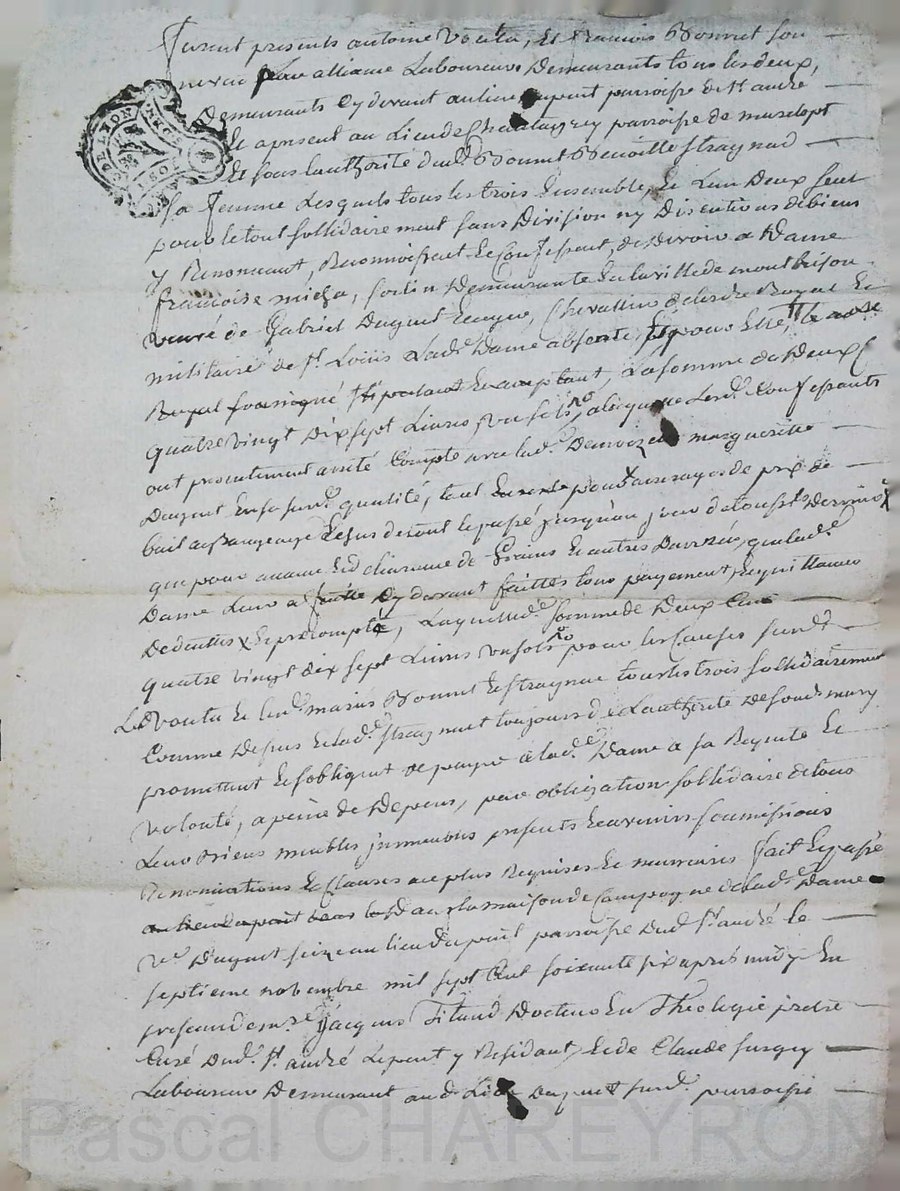 furent presents antoine Voutu, Et francois Bonnet son
neveu par alliance Laboureurs Demeurants tous les deux,
Demeurants Cy devant au lieu dupuit parroisse de st andré
Et apresent au Lieu de parroisse de marclopt
Et sous lauthorité dud. Bonnet Benoitte straynad
Sa femme Lesquels tous les trois Ensemble, Et Lun Deux seul
pour le tout sollidairement sans Division ny Discutions de biens
y Renoncant, Reconnoissent Et Confessent, de devoir a Dame
francoise micha, Demeurante En la ville de montbrison
veuve de Gabriel Duguet Ecuyer, Chevallier de lordre Royal Et
militaire de st. Louis Lad. Dame absente, pour Elle, le note
Royal soussigné Et acceptant, La somme de Deux C
quatre vingt Dix sept Livres, sols, alaquelle Lesd. Confessants
ont presentement arreté Compte avec lad. Demoizelle margueritte
Duguet En sa susd. qualité, tant En reste pour arrerages de prix de
bail Et sus devant le passé jusquau jour de toussts. Dernier
que pour avance de Grains Et autres Danrées, que lad.
Dame Leur a Cy devant faittes tous payement, Et quittances
Deduittes & Et precomptés, Laquelle somme de Deux Cent
quatre vingt dix sept Livres sols pour les Causes susd.
Led Voutu Et les d. mariés Bonnet Et straynad tous les trois sollidairement
Comme Dessus Et lad. straynad toujours de Lauthorité de sond. mary
promettent Et sobligent de payer a lad. Dame a sa Requete Et
volonté, a peine de Depens, par obligation sollidaire de tous
Leur Biens meubles jmmeubles presents Et avenirs soumissions
Renonciations Et Clauses au plus Requises Et necessaires fait Et passé
au lieu dupuit Dans la maison de Campagne de lad. Dame
ve Duguet size au lieu dupuit parroisse dud. st. andré le
septieme novembre mil sept Cent soixante six aprés midy En
presence de mre. Jacques Docteur En Theologie pretre
Curé dud. st. andré Lepuit y Residant, Et de Claude
Laboureur Demeurant aud. Lieu Dupuit susd. parroisse
Pascal CHAREYRON